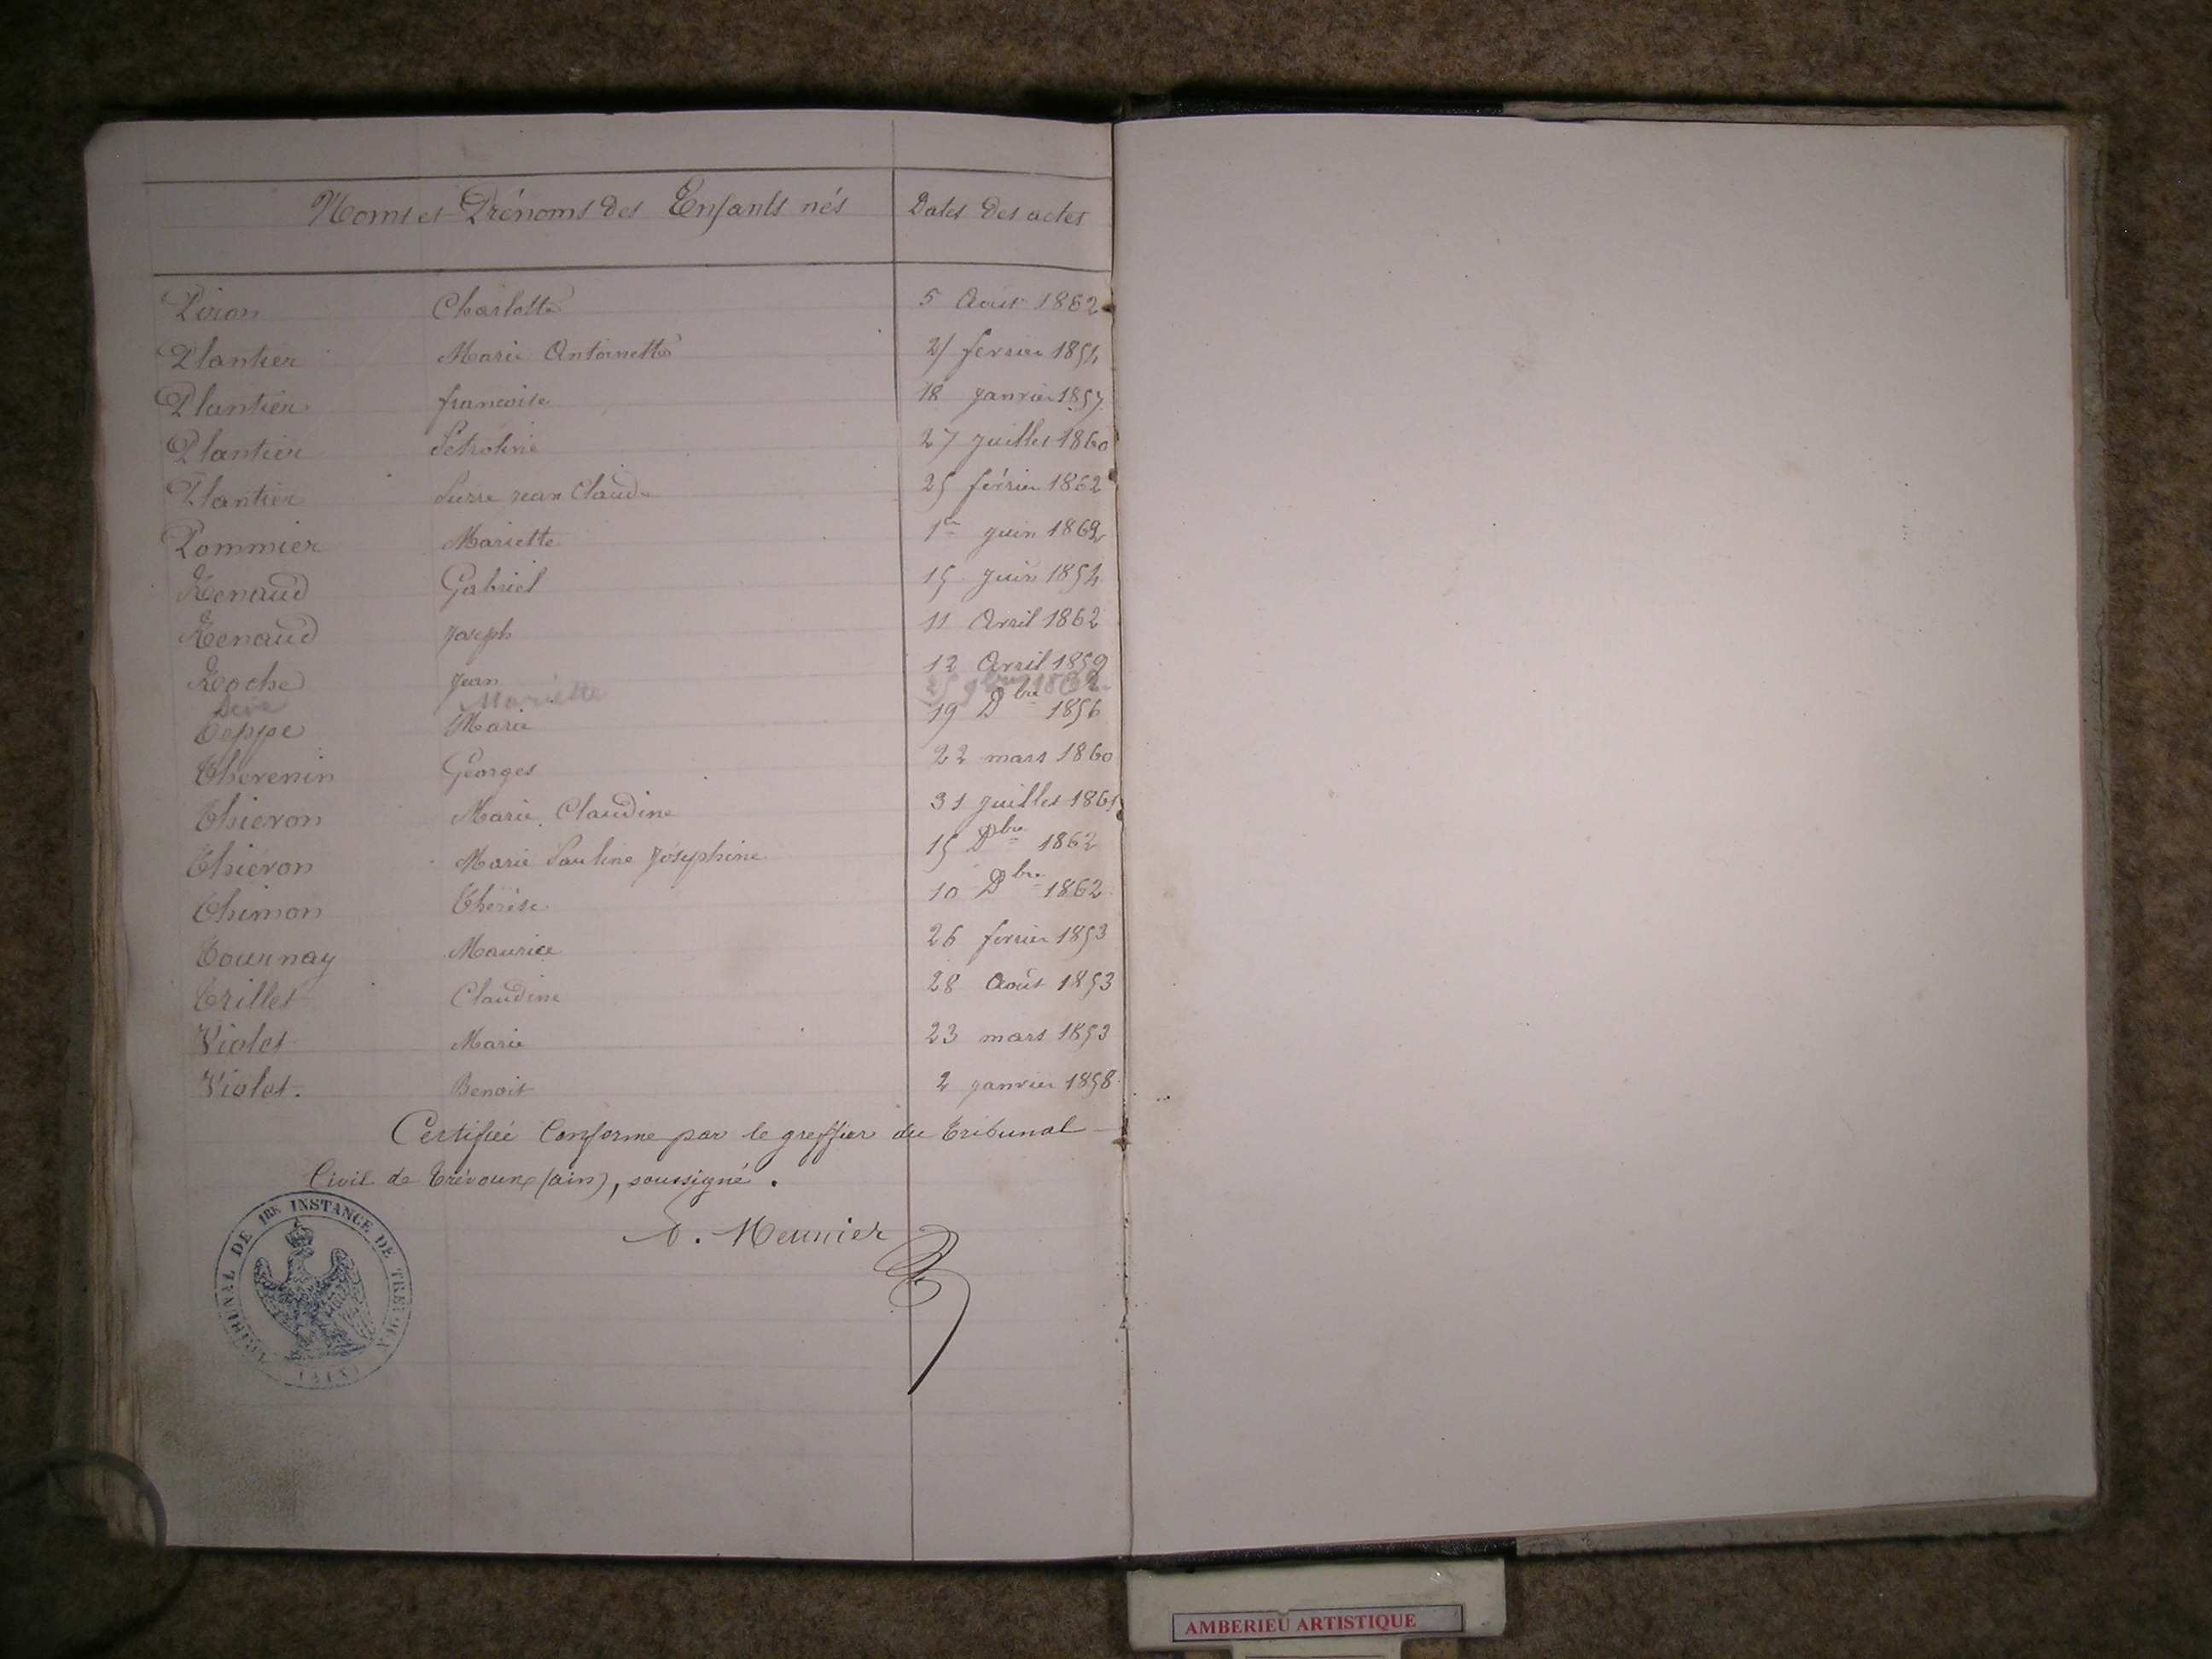 Noms et Prénoms des Enfants nés Dates des actes
Piron Charlotte 5 Aout 1862
Plantier Marie Antoinette 21 fevrier 1854
Plantier francoise 18 janvier 1857
Plantier Petroline 27 juillet 1860
Plantier Pierre jean Claude 25 février 1862
Pommier Mariette 1er juin 1862
Renaud Gabriel 15 juin 1854
Renaud Joseph 11 Avril 1862
Roche Jean 12 Avril 1859
Sève Mariette 25 9bre 1862
Teppe Marie 19 Dbre 1856
Thevenin Georges 22 mars 1860
Thiévon Marie Claudine 31 juillet 1861
Thiévon Marie Pauline Joséphine 15 Dbre 1862
Thimon Thérèse 10 Dbre 1862
Tournay Maurice 26 fevrier 1853
Trillet Claudine 28 Août 1853
Violet Marie 23 mars 1853
Violet. Benoit 2 janvier 1858
Certifiée Conforme par le greffier du tribunal
Civil de Trévoux (ain), soussigné.
Meunier
TRIBUNAL DE 1RE INSTANCE DE TREVOUX
(AIN)
AMBERIEU ARTISTIQUE